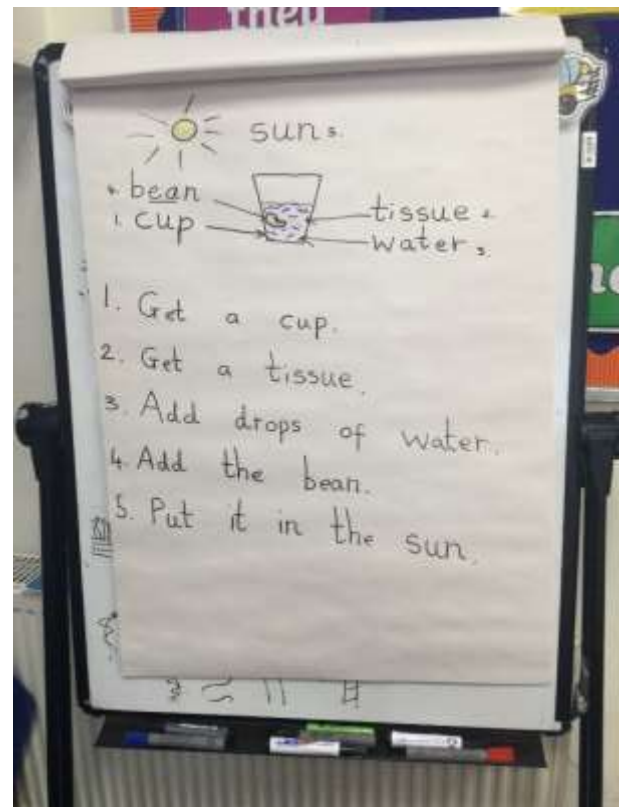 they
sun 5.
4. bean
1. cup
tissue 2.
water 3.
1. Get a cup.
2. Get a tissue.
3. Add drops of water.
4. Add the bean.
5. Put it in the sun.